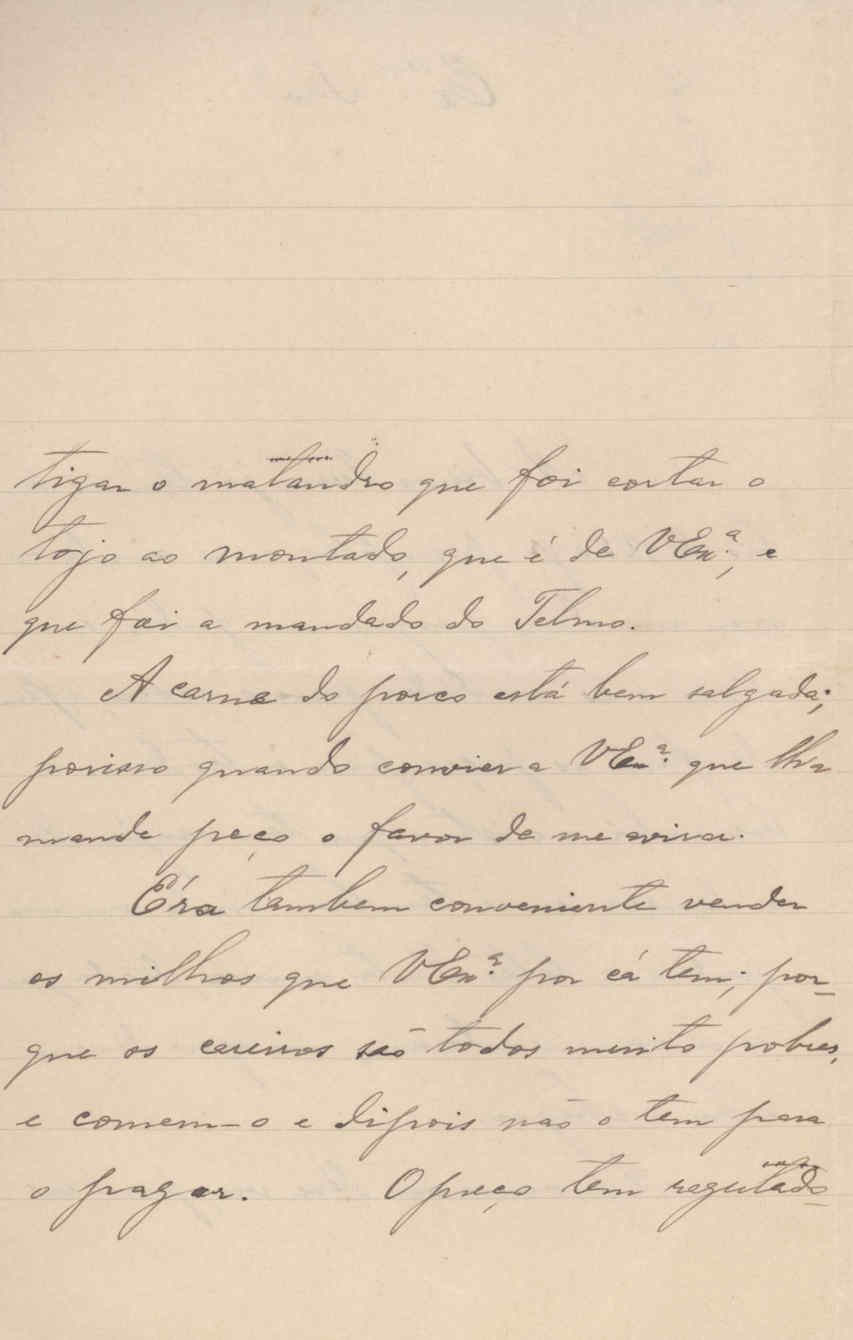 tigar o malandro que foi cortar o
tojo ao montado, que é de VEx.ª, e
que foi a mandado do Telmo.
A carne do porco está bem salgada;
porisso quando convier a VEx.ª que lh'a
mande peço o favor de me avisar.
Éra tambem conveniente vender
os milhos que VEx.ª por cá tem; por-
que os caseiros são todos muito pobres,
e comem-o e dipois não o tem para
o pagar. O preço tem regulado